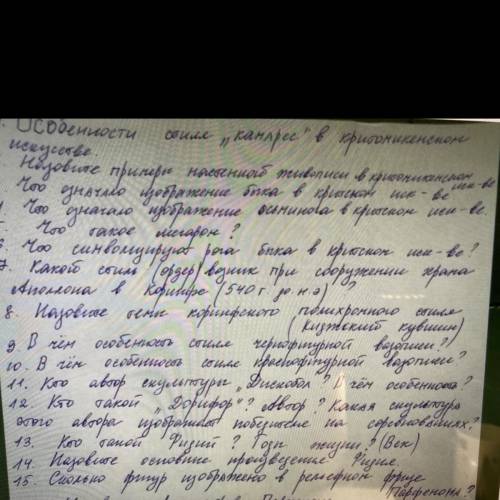 . Особенности стиля „камарес" в критомикенском
искусстве.
Назовите примеры настенной живописи в критомикенском иск-ве
Что означало изображение быка в критском иск-ве
Что означало изображение осьминога в критском иск-ве.
Что такое мегарон?
Что символизируют рога быка в критском иск-ве?
7. Какой стиль (ордер) возник при сооружении храма
Аполлона в Коринфе (540 г. до н.э) ?
8. Назовите коринфского полихромного стиля
(Кижжский кувшин)
9. В чём особенность стиля чернофигурной вазописи?)
10. В чём особенность стиля краснофигурной вазописи?
11. Кто автор скульптуры „Дискобол"? В чём особенность?
12. Кто такой „Дорифор"? Автор? Какая скульптура
этого автора изображает победителя на соревнованиях?
13. Кто такой Фидий? Годы жизни? (Век)
14. Назовите основные произведения Фидия.
15. Сколько фигур изображено в рельефном фризе
Парфенона?